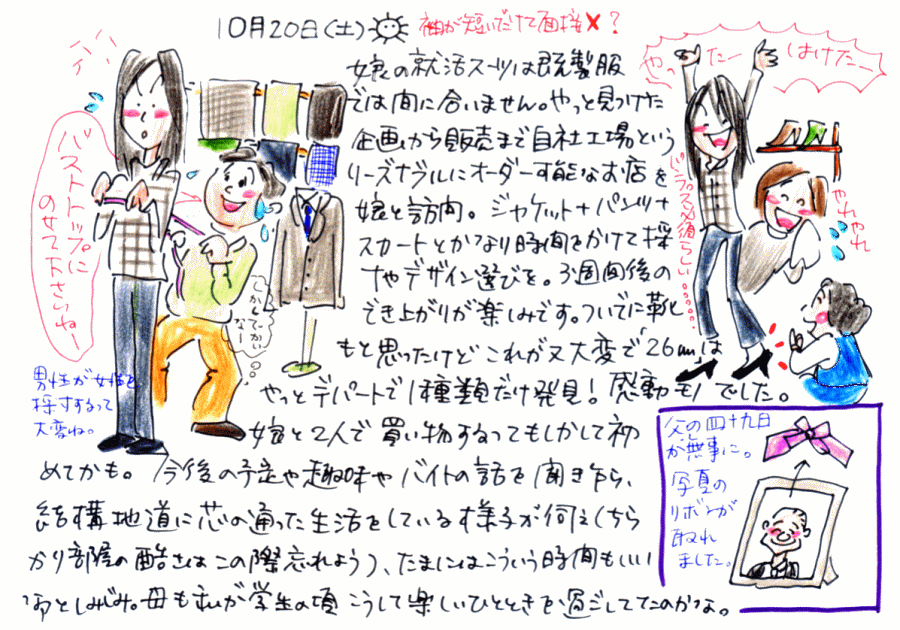 10月20日(土)
袖が短いだけで面接✗?
娘の就活スーツは既製服
では間に合いません。やっと見つけた
企画から販売まで自社工場という
リーズナブルにオーダー可能なお店を
娘と訪問。ジャケット+パンツ+
スカートとかなり時間をかけて採
寸やデザイン選びを。3週間後の
でき上がりが楽しみです。ついでに靴
もと思ったけどこれが又大変で26cmは
やっとデパートで1種類だけ発見!感動モノでした。
娘と2人で買い物するってもしかして初
めてかも。今後の予定や趣味やバイトの話を聞きながら、
結構地道に芯の通った生活をしている様子が伺え(ちら
かり部屋の酷さはこの際忘れよう)、たまにはこういう時間もいい
なあとしみじみ。母も私が学生の頃こうして楽しいひとときを過ごしてたのかな。
バストトップに
のせて下さいねー
しかしでかい
なー
男性が女性を
採寸するって
大変ね。
やったー はけたー
パンプス必須らしい
やれやれ
父の四十九日
が無事に。
写真の
リボンが
取れ
ました。